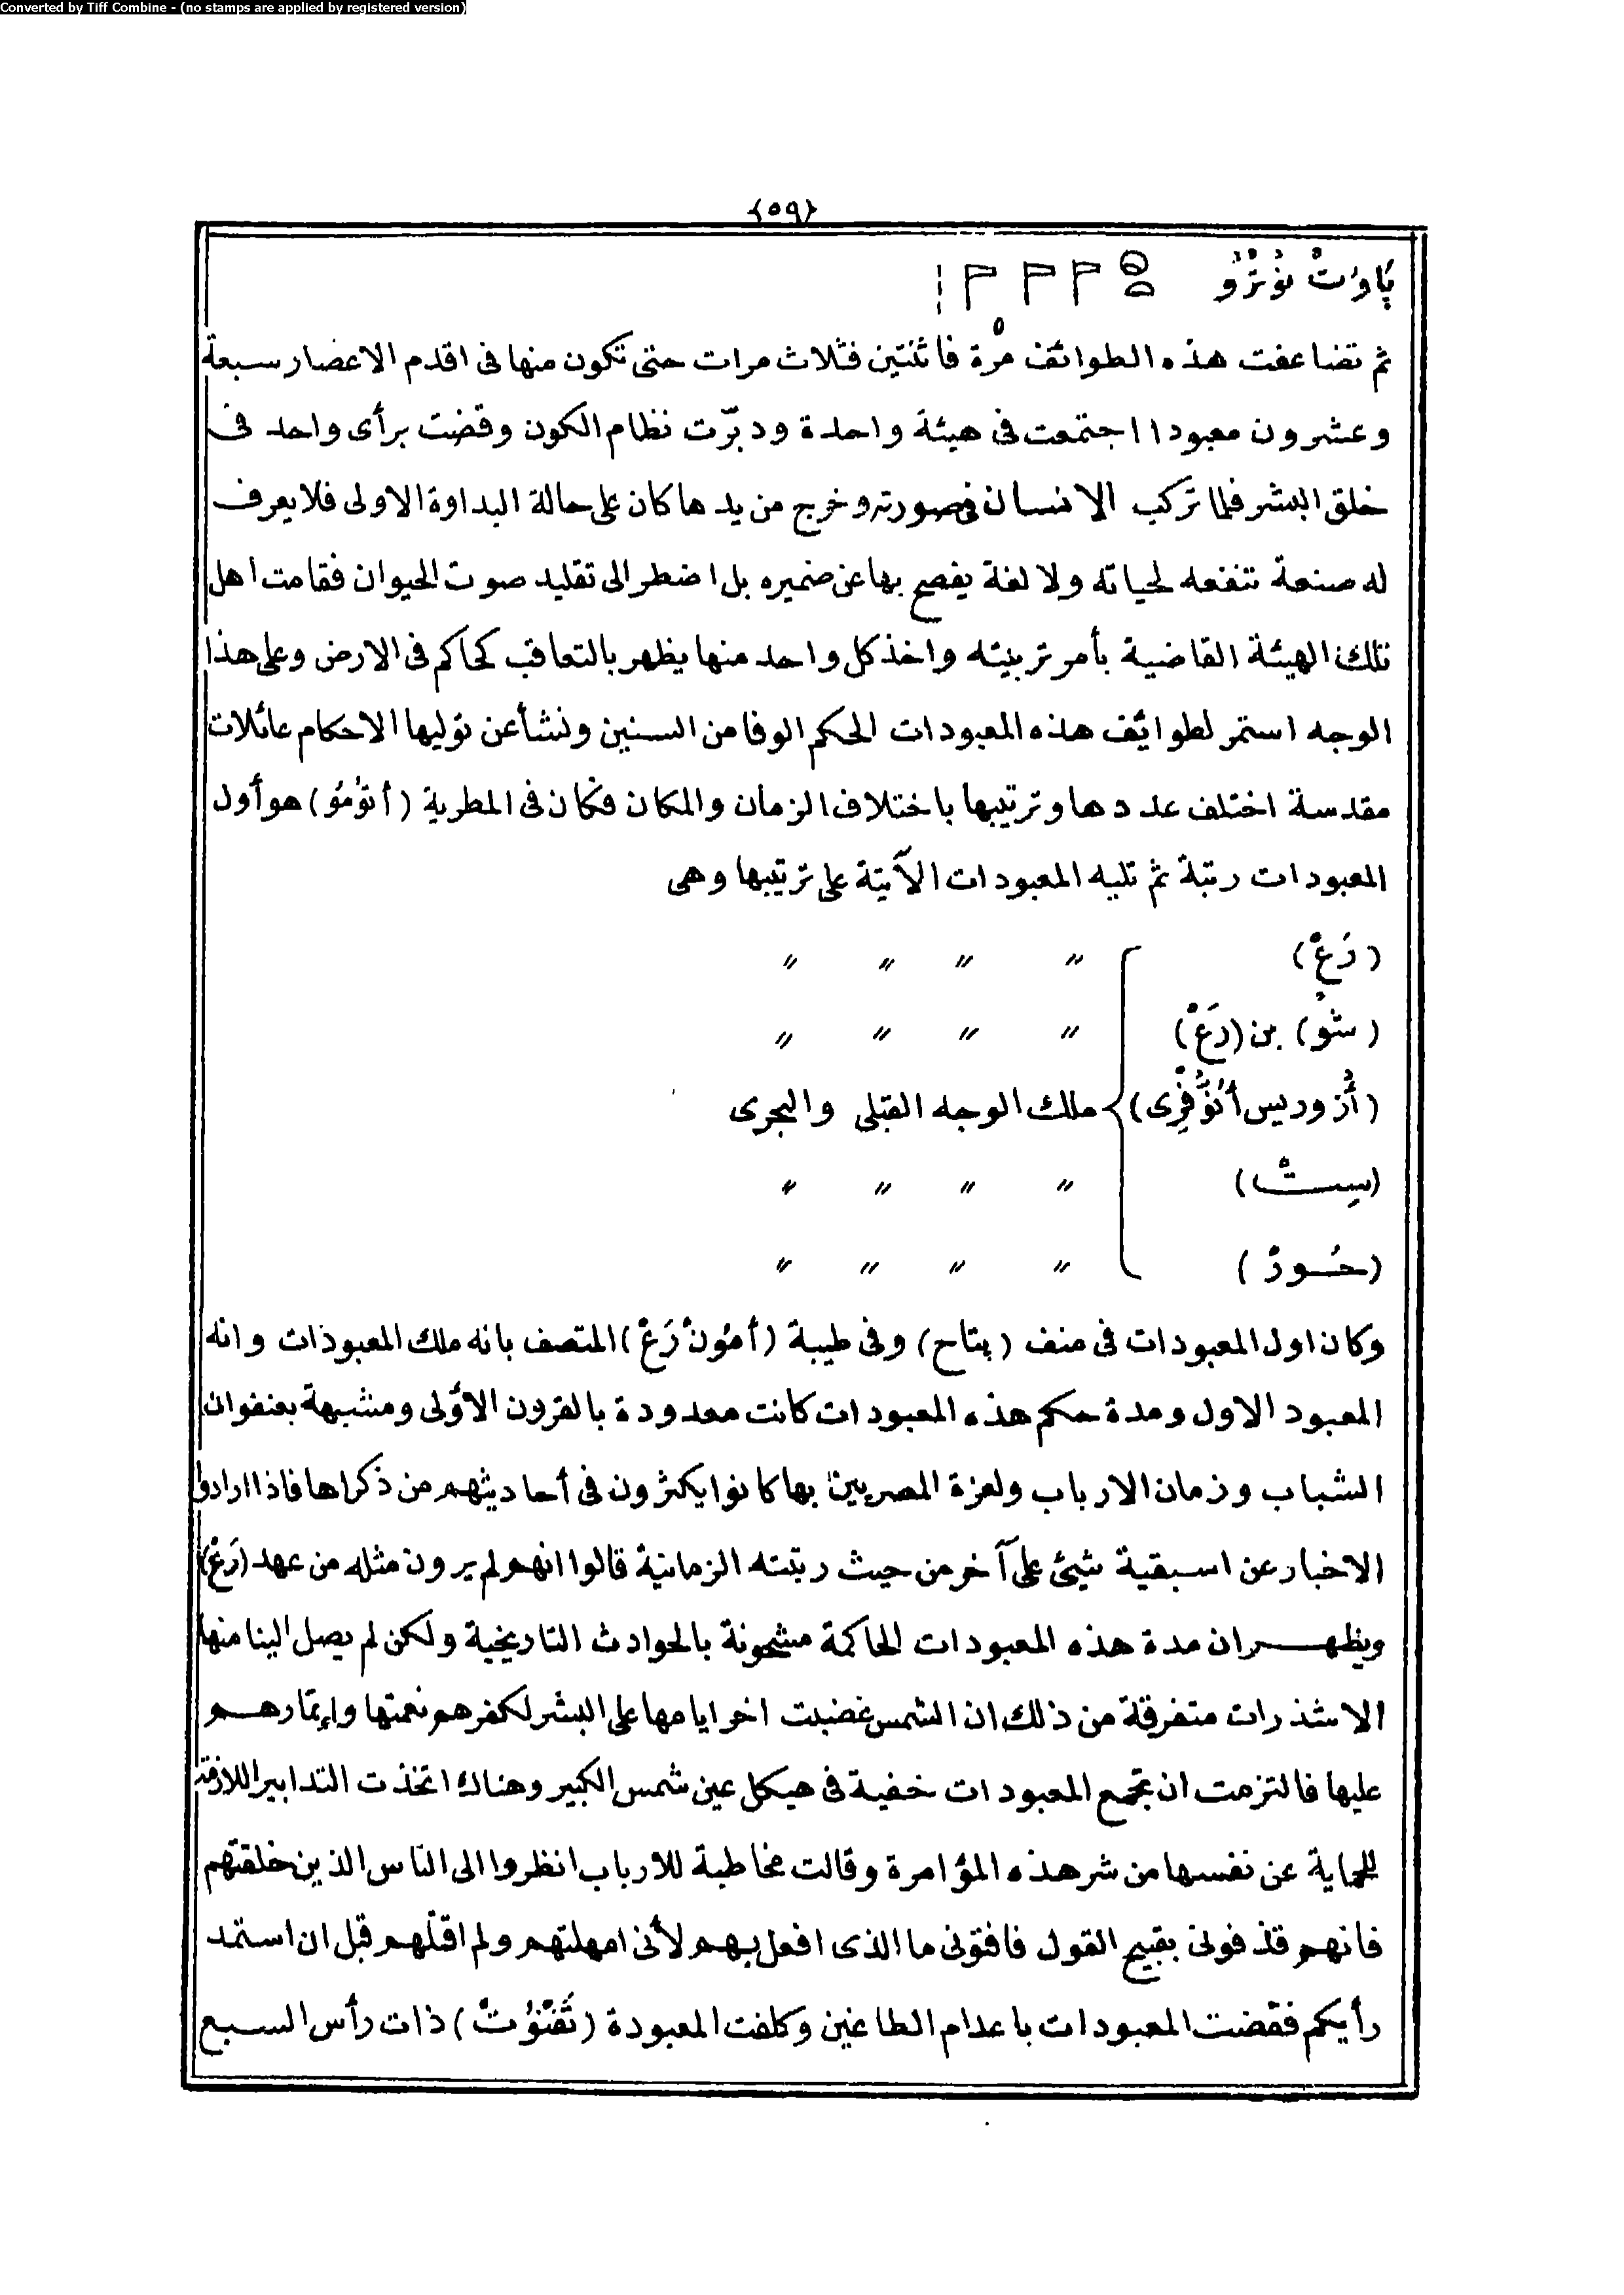 Converted by Tiff Combine - (no stamps are applied by registered version)
{٥٩}
پَاوُتْ نوُتْرُو
ثم تضاعفت هذه الطوائف مرّة فاثنتين فثلاث مرات حتى تكون منها فى اقدم الاعصار سبعة
وعشرون معبودا اجتمعت فى هيئة واحدة ودبّرت نظام الكون وقضت برأى واحد فى
خلق البشر فلما تركب الانسان فى صورته وخرج من يدها كان على حالة البداوة الاولى فلا يعرف
له صنعة تنفعه لحياته ولا لغة يفصح بها عن ضميره بل اضطر الى تقليد صوت الحيوان فقامت اهل
تلك الهيئة القاضية بأمر تربيته واخذ كل واحد منها يظهر بالتعاقب كحاكم فى الارض وعلى هذا
الوجه استمر لطوائف هذه المعبودات الحكم الوفا من السنين ونشأ عن توليها الاحكام عائلات
مقدسة اختلف عددها وترتيبها باختلاف الزمان والمكان فكان فى المطرية (أتوُمُو) هو أول
المعبودات رتبة ثم تليه المعبودات الآتية على ترتيبها وهى
(رَعْ) " " " "
(شُو) بن (رَعْ) " " " "
(أُزوريس أُنوُّفْرِى) ملك الوجه القبلى والبحرى
(سِتْ) " " " "
(حُورْ) " " " "
وكان اول المعبودات فى منف (پتاح) وفى طيبة (أمُونْ رَعْ) المتصف بانه ملك المعبودات وانه
المعبود الاول ومدة حكم هذه المعبودات كانت معدودة بالقرون الأولى ومشبهة بعنفوان
الشباب وزمان الارباب ولعزة المصريين بها كانوا يكثرون فى أحاديثهم من ذكراها فاذا ارادوا
الاخبار عن اسبقية شيئ على آخر من حيث رتبته الزمانية قالوا انهم لم يرون مثله من عهد (رَعْ)
ويظهر ان مدة هذه المعبودات الحاكمة مشحونة بالحوادث التاريخية ولكن لم يصل الينا منها
الا شذرات متفرقة من ذلك ان الشمس غضبت اخر ايامها على البشر لكفرهم نعمتها وإتمارهم
عليها فالتزمت ان تجمع المعبودات خفية فى هيكل عين شمس الكبير وهناك اتخذت التدابير اللازمة
للحماية عن نفسها من شر هذه المؤامرة وقالت مخاطبة للارباب انظروا الى الناس الذين خلقتهم
فانهم قذفونى بقبيح القول فافتونى ما الذى افعل بهم لأنى امهلتهم ولم اقتلهم قبل ان استمد
رأيكم فقضت المعبودات باعدام الطاغين وكلفت المعبودة (تَفْنُوتْ) ذات رأس السبع